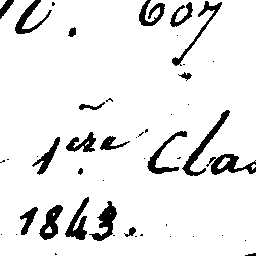 N. 607
1ère Clas
1843.